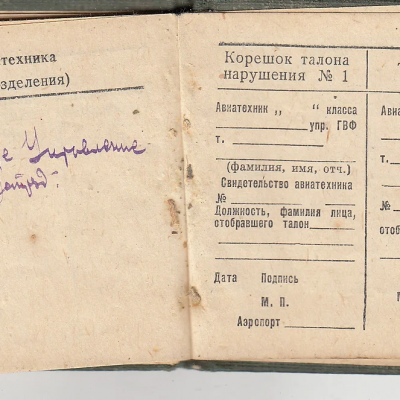 техника
зделения)
е Управление
Корешок талона
нарушения № 1
Авиатехник „ “ класса
упр. ГВФ
т.
(фамилия, имя, отч.)
Свидетельство авиатехника
№
Должность, фамилия лица,
отобравшего талон
Дата Подпись
М. П.
Аэропорт
Авиа
т.
№
отоб